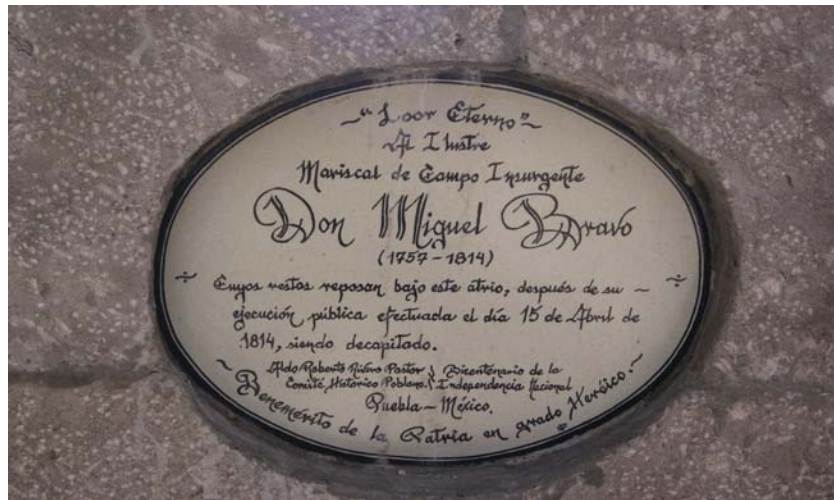 "Loor Eterno"
Al Ilustre
Mariscal de Campo Insurgente
Don Miguel Bravo
(1757-1814)
Cuyos restos reposan bajo este atrio, después de su
ejecución pública efectuada el día 15 de Abril de
1814, siendo decapitado.
Aldo Roberto Rivero Pastor Bicentenario de la
Comité Histórico Poblano. Independencia Nacional
Puebla - México.
Benemérito de la Patria en grado Heróico.